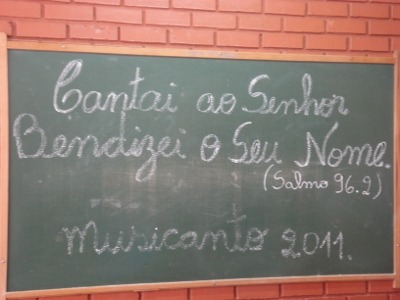 Cantai ao Senhor
Bendizei o Seu Nome.
(Salmo 96.2)
Musicanto 2011.